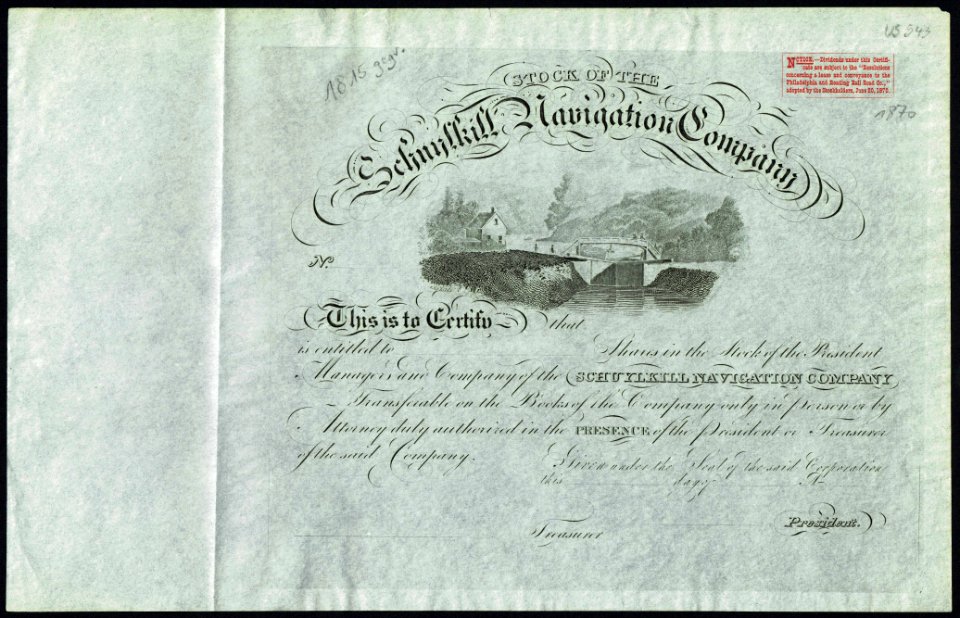 US 543
1815 ggr.
NOTION.—Dividends under this Certifi-
cate are subject to the "Resolutions
concerning a lease and conveyance to the
Philadelphia and Reading Rail Road Co.,"
adopted by the Stockholders, June 20, 1870.
1870
STOCK OF THE
Schuylkill Navigation Company
No.
This is to Certify that
is entitled to Shares in the Stock of the President
Managers and Company of the SCHUYLKILL NAVIGATION COMPANY
Transferable on the Books of the Company only in person or by
Attorney duly authorized in the PRESENCE of the president or Treasurer
of the said Company.
Given under the Seal of the said Corporation
this day of A
President.
Treasurer